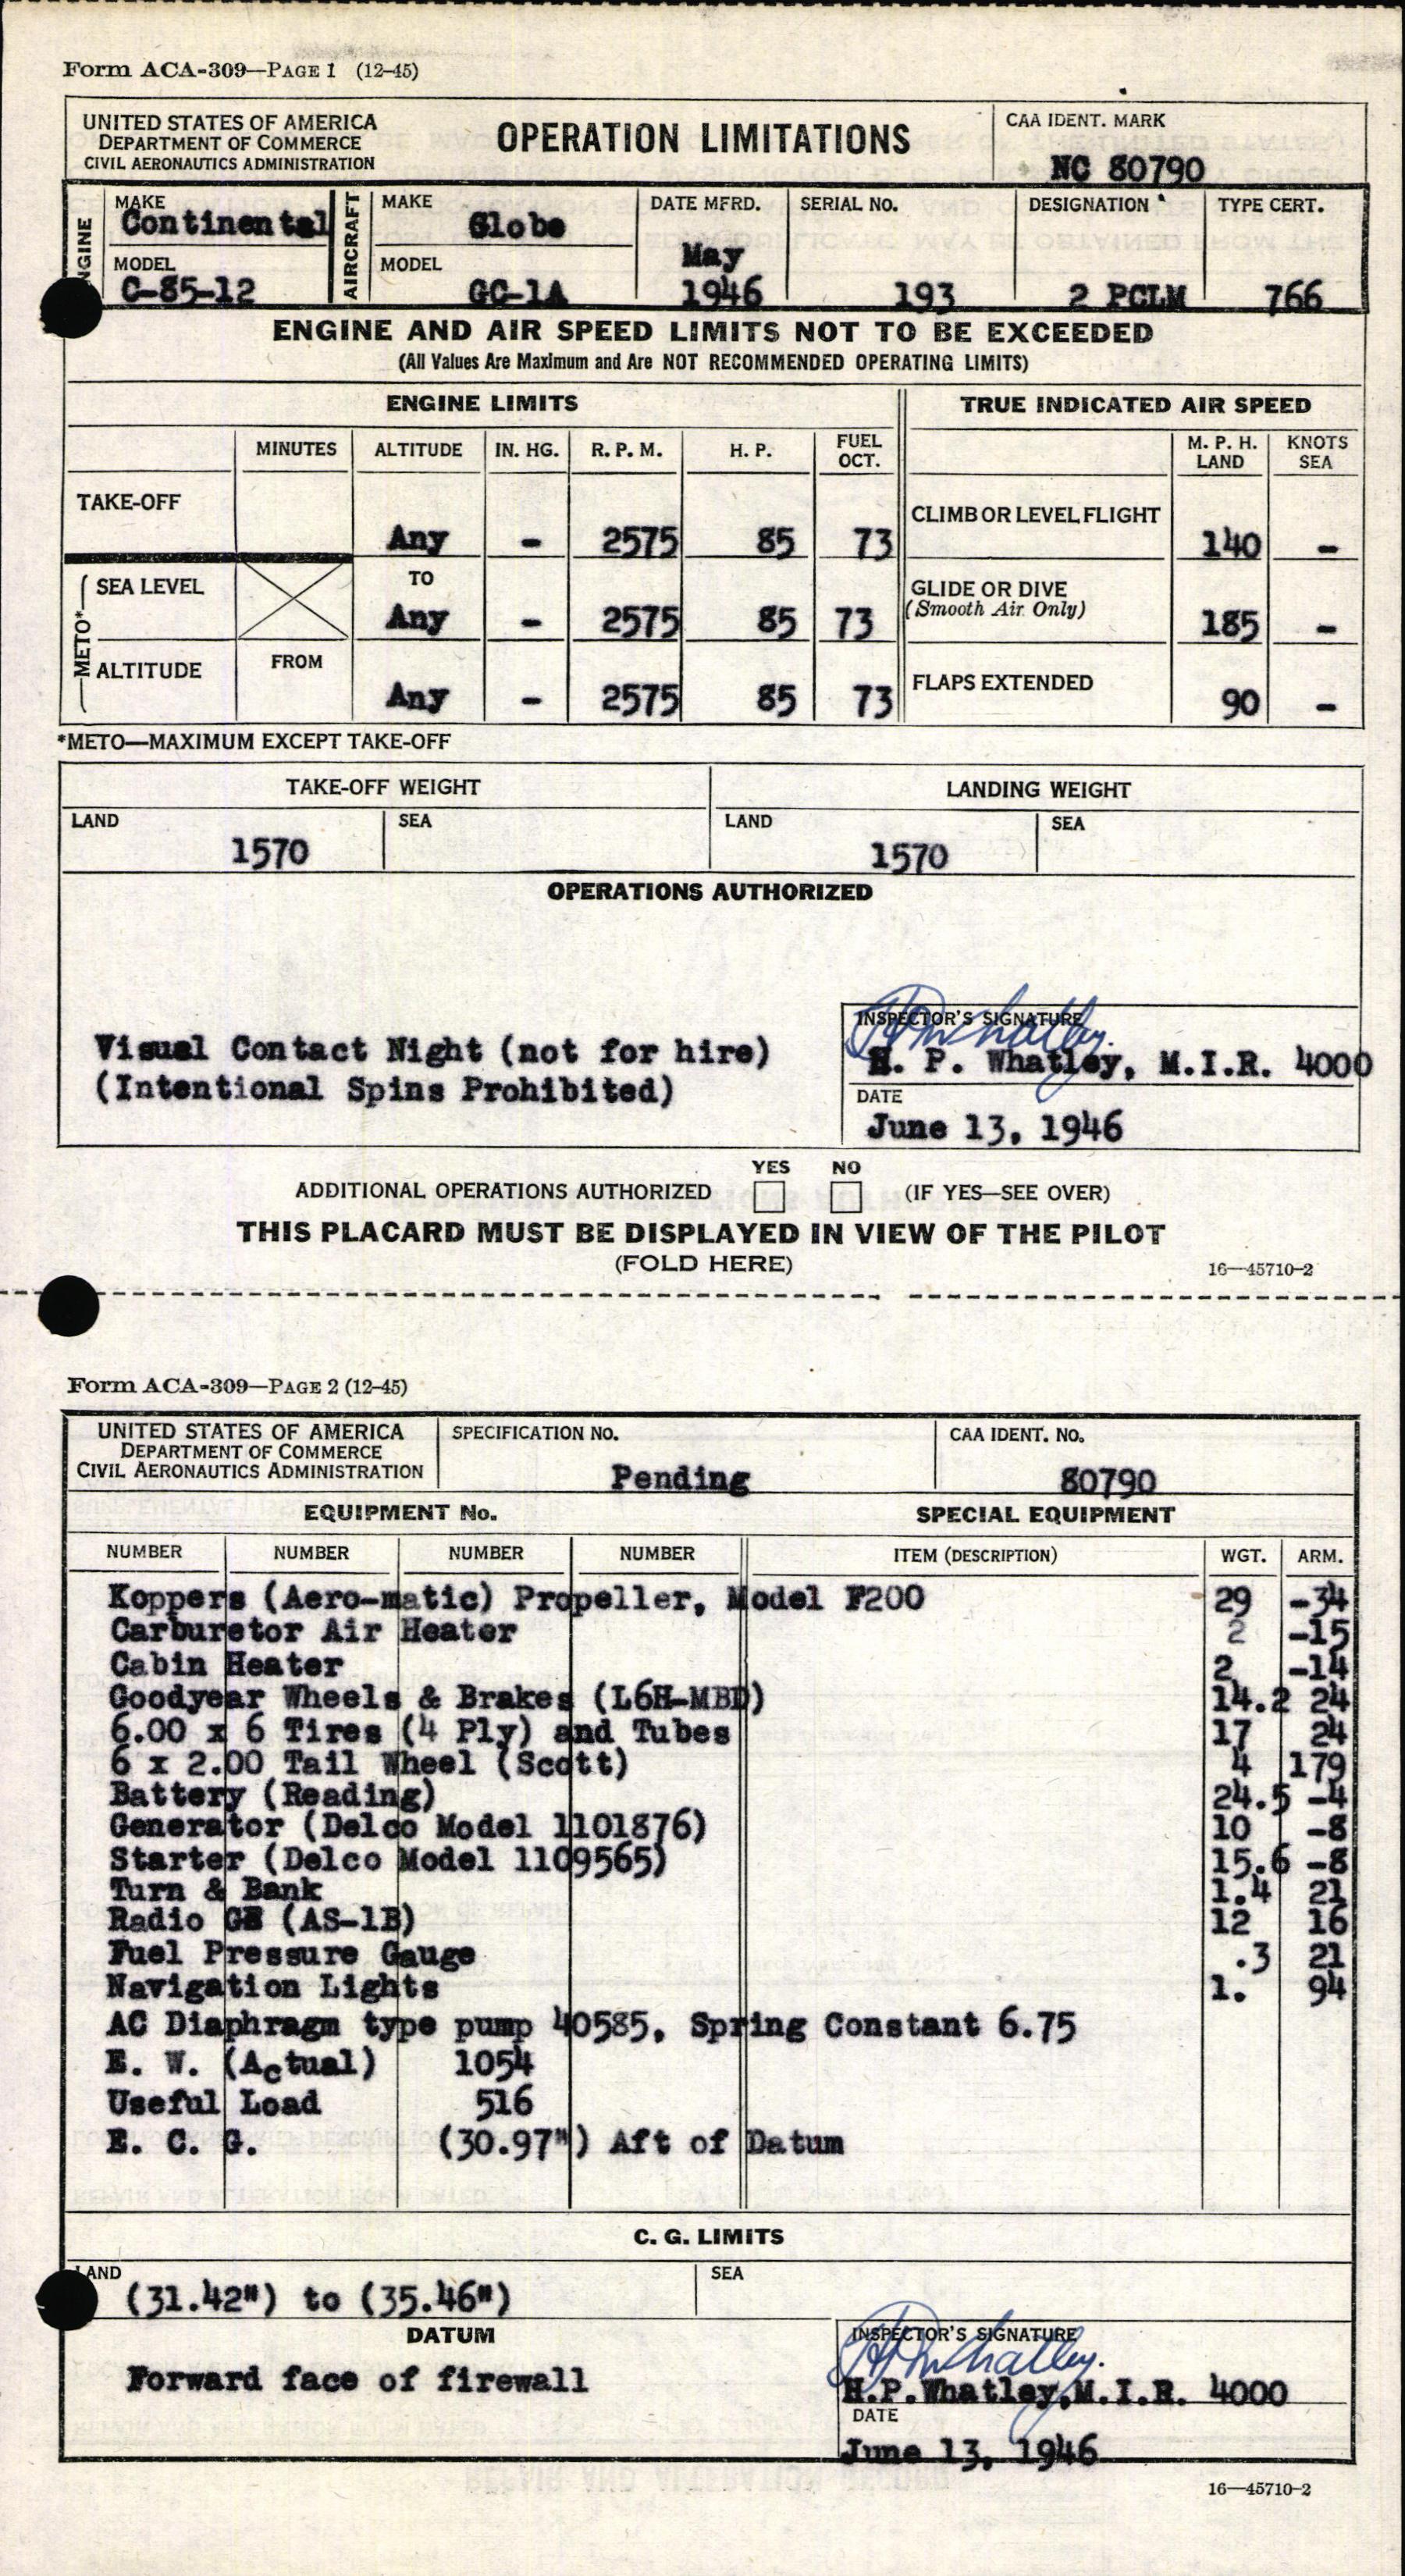 Form ACA-309—PAGE 1 (12-45)
UNITED STATES OF AMERICA
DEPARTMENT OF COMMERCE
CIVIL AERONAUTICS ADMINISTRATION
OPERATION LIMITATIONS
CAA IDENT. MARK
NC 80790
ENGINE
MAKE
Continental
MODEL
C-85-12
AIRCRAFT
MAKE
Globe
MODEL
GC-1A
DATE MFRD.
May
1946
SERIAL NO.
193
DESIGNATION
2 PCLM
TYPE CERT.
766
ENGINE AND AIR SPEED LIMITS NOT TO BE EXCEEDED
(All Values Are Maximum and Are NOT RECOMMENDED OPERATING LIMITS)
ENGINE LIMITS
TRUE INDICATED AIR SPEED
MINUTES ALTITUDE IN. HG. R. P. M. H. P. FUEL OCT.
M. P. H. LAND KNOTS SEA
TAKE-OFF Any - 2575 85 73
CLIMB OR LEVEL FLIGHT 140 -
METO*
SEA LEVEL TO Any - 2575 85 73
GLIDE OR DIVE
(Smooth Air Only) 185 -
ALTITUDE FROM Any - 2575 85 73
FLAPS EXTENDED 90 -
*METO—MAXIMUM EXCEPT TAKE-OFF
TAKE-OFF WEIGHT LANDING WEIGHT
LAND SEA LAND SEA
1570 1570
OPERATIONS AUTHORIZED
Visual Contact Night (not for hire)
(Intentional Spins Prohibited)
INSPECTOR'S SIGNATURE
H P Whatley.
H. P. Whatley, M.I.R. 4000
DATE
June 13, 1946
YES NO
ADDITIONAL OPERATIONS AUTHORIZED (IF YES—SEE OVER)
THIS PLACARD MUST BE DISPLAYED IN VIEW OF THE PILOT
(FOLD HERE)
16—45710-2
Form ACA-309—PAGE 2 (12-45)
UNITED STATES OF AMERICA
DEPARTMENT OF COMMERCE
CIVIL AERONAUTICS ADMINISTRATION
SPECIFICATION NO.
Pending
CAA IDENT. NO.
80790
EQUIPMENT No. SPECIAL EQUIPMENT
NUMBER NUMBER NUMBER NUMBER ITEM (DESCRIPTION) WGT. ARM.
Koppers (Aero-matic) Propeller, Model F200 29 -34
Carburetor Air Heater 2 -15
Cabin Heater 2 -14
Goodyear Wheels & Brakes (L6H-MBD) 14.2 24
6.00 x 6 Tires (4 Ply) and Tubes 17 24
6 x 2.00 Tail Wheel (Scott) 4 179
Battery (Reading) 24.5 -4
Generator (Delco Model 1101876) 10 -8
Starter (Delco Model 1109565) 15.6 -8
Turn & Bank 1.4 21
Radio GE (AS-1B) 12 16
Fuel Pressure Gauge .3 21
Navigation Lights 1. 94
AC Diaphragm type pump 40585, Spring Constant 6.75
E. W. (Actual) 1054
Useful Load 516
E. C. G. (30.97") Aft of Datum
C. G. LIMITS
LAND SEA
(31.42") to (35.46")
DATUM
Forward face of firewall
INSPECTOR'S SIGNATURE
H P Whatley.
H.P.Whatley,M.I.R. 4000
DATE
June 13, 1946
16—45710-2